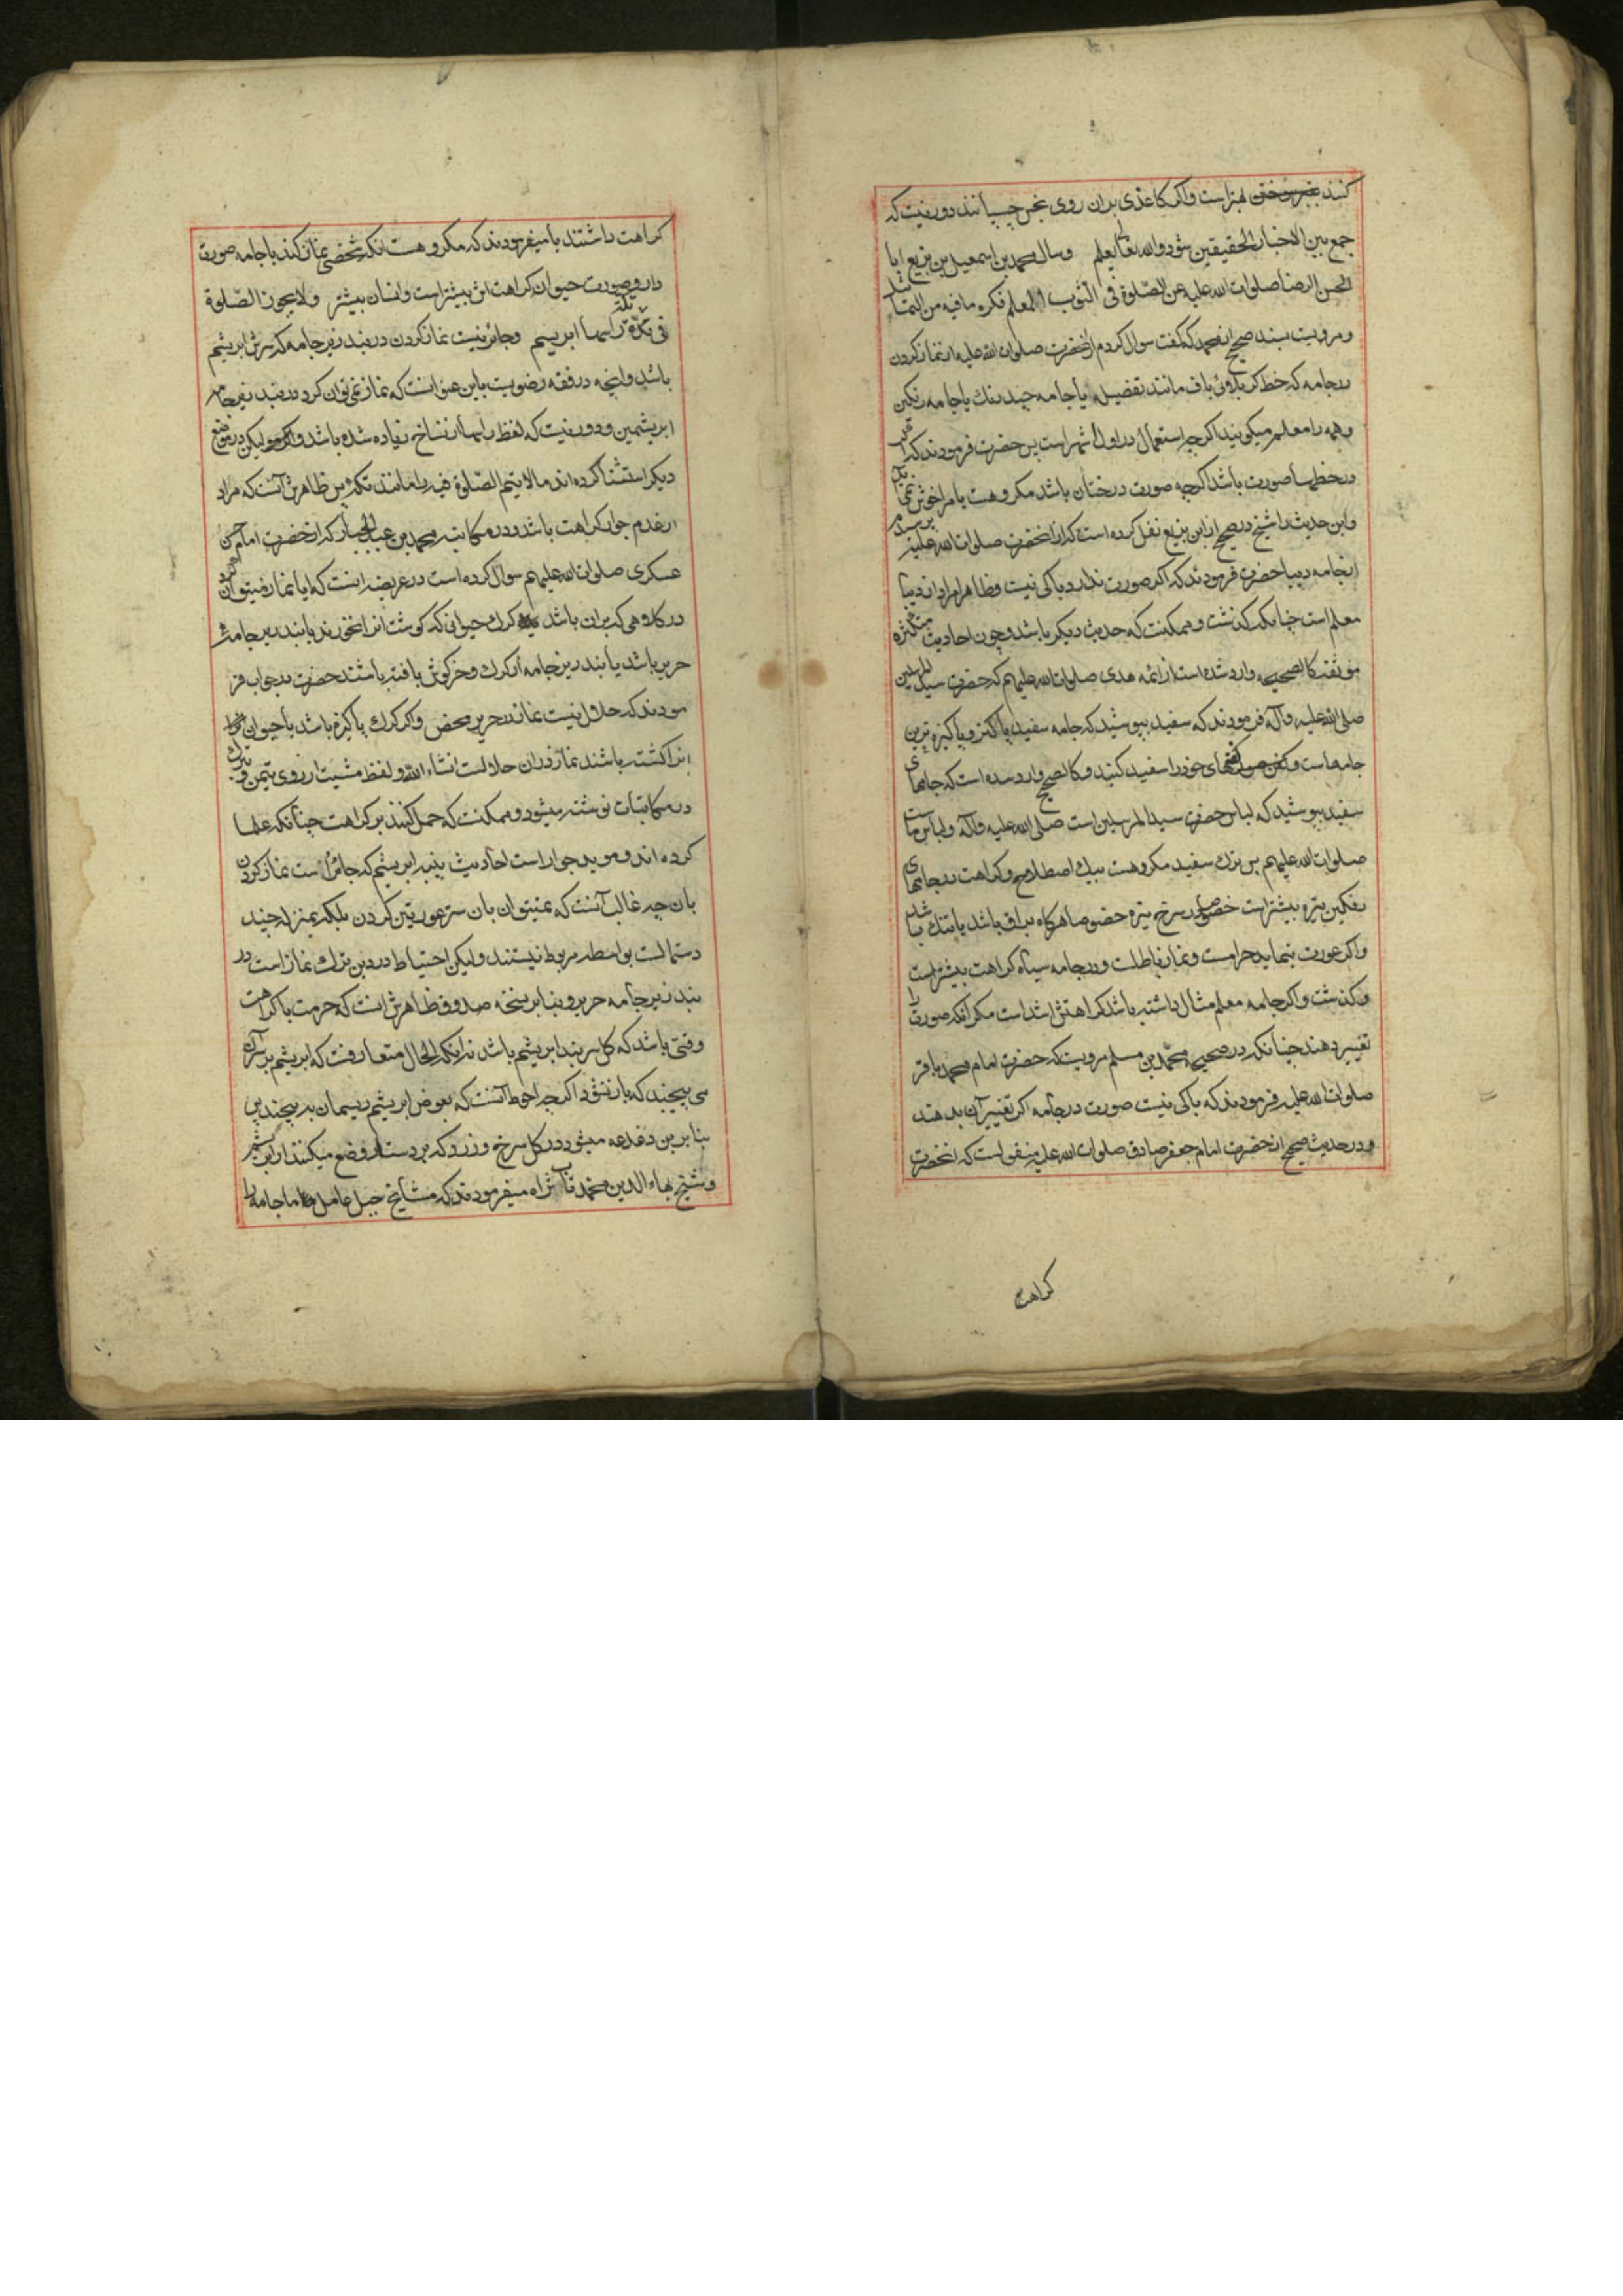 کنند بهتراست واکر کاغذی بران روی نجس چسپانند دور نیست که
جمع بین الاخبار الحقیقین شود والله تعالی یعلم وسال محمد بن اسمعیل بن بزیع ابا
الحسن الرضا صلوات الله علیه عن الصّلوة فی الثوب المعلم فکره مافیه من التماثیل
ومرویست بسند صحیح از محمد که گفت سوال کردم ازانحضرت صلوات الله علیه از نماز کردن
درجامه که خط کرباوئی باف مانند تفضیله یا جامه چند رنك یا جامه رنکین
وهمه را معلم میکویند اکرچه استعمال در اول اشهر است پس حضرت فرمودند که
درخطها صورت باشد اکرچه صورت درختان باشد مکروهست یا مراخوش نمی اید
واین حدیث را شیخ درصحیح از ابن بزیع نقل کرده است که ازانحضرت صلوات الله علیه پرسیدم
ازجامه دیبا حضرت فرمودند که اکر صورت ندارد باکی نیست وظاهرا مراد از دیبا
معلم است چنانکه کذشت وممکنست که حدیث دیکر باشد وچون احادیث متکثره
موثقه کالصحیحه وارد شده است از ائمه هدی صلوات الله علیهم که حضرت سید المرسلین
صلی الله علیه وآله فرمودند که سفید بپوشید که جامه سفید پاکتر و پاکیزه ترین
جامهاست و کفنهای خودرا سفید کنید وکالصحیح وارد شده است که جامهای
سفید بپوشید که لباس حضرت سید المرسلین است صلی الله علیه وآله ولباس ماست
صلوات الله علیهم پس ترك سفید مکروهست بیك اصطلاح وکراهت درجامهای
رنکین تیره بیشتراست خصوصا در سرخ تیره خصوصا هرکاه براق باشد یا تنك باشد
واکر عورت بنماید حرامست ونماز باطلست ودرجامه سیاه کراهت بیشتراست
وکذشت واکر جامه معلم مثال داشته باشد کراهتش اشداست مکر انکه صورت را
تغییر دهند چنانکه درصحیح محمّد بن مسلم مرویست که حضرت امام محمد باقر
صلوات الله علیه فرمودند که باکی نیست صورت درجامه اکر تغییر آن بدهند
ودرحدیث صحیح ازحضرت امام جعفر صادق صلوات الله علیه منقولست که انحضرت
کراهت
کراهت داشتند یا میفرمودند که مکروهست انکه شخصی نماز کند باجامه صورت
دار وصورت حیوان کراهت اش بیشتراست وانسان بیشتر ولایجوز الصّلوة
فی تکّة راسها ابریسم وجائز نیست نماز کردن دربند زیرجامه که سرش ابریشم
باشد وانچه درفقه رضویست باین عنوانست که نماز نمی توان کرد دربند زیرجامه
ابریشمین ودور نیست که لفظ راسها از نساخ زیاده شده باشد ولیکن درموضع
دیکر استثنا کرده اند مالایتم الصّلوة فیه را مانند تکه پس ظاهرش آنست که مراد
ازعدم جواز کراهت باشد ودرمکاتبه محمد بن عبدالجبار که ازحضرت امام حسن
عسکری صلوات الله علیهم سوال کرده است درعریضه اینست که ایا نماز میتوان کرد
درکلاهی که بران باشد کرك حیوانی که کوشت انرا نخورند یا بند زیرجامه اش
حریر باشد یا بند زیرجامه از کرك وخرکوش بافته باشند حضرت درجواب فر
مودند که حلال نیست نماز درحریر محض واکر کرك پاکیزه باشد یا حیوان
انرا کشته باشند نماز دران حلالست انشاء الله ولفظ مشیت از روی تیمن وتبرك
درمکاتبات نوشته میشود وممکنست که حمل کنند برکراهت چنانکه علما
کرده اند ومؤید جواز است احادیث پنبه ابریشم که جائز است نماز کردن
بان چه غالب آنست که نمیتوان بان ستر عورتین کردن بلکه بمنزله چند
دستمالست بواسطه مربوط نیستند ولیکن احتیاط دردین ترك نماز است در
بند زیرجامه حریر وبنابر نسخه صدوق ظاهرش انست که حرمت یا کراهت
وقتی باشد که کل سربند ابریشم باشد زیرا که الحال متعارفست که ابریشم برسرآن
می پیچند که باز نشود اکرچه احوط انست که بعوض ابریشم ریسمان بر پیچند پس
بنابرین دغدغه میشود درکل سرخ وزرد که بردستار وضع میکنند از ابریشم
وشیخ بهاء الدین محمد طاب ثراه میفرمودند که مشایخ جبل عامل ما جامه را